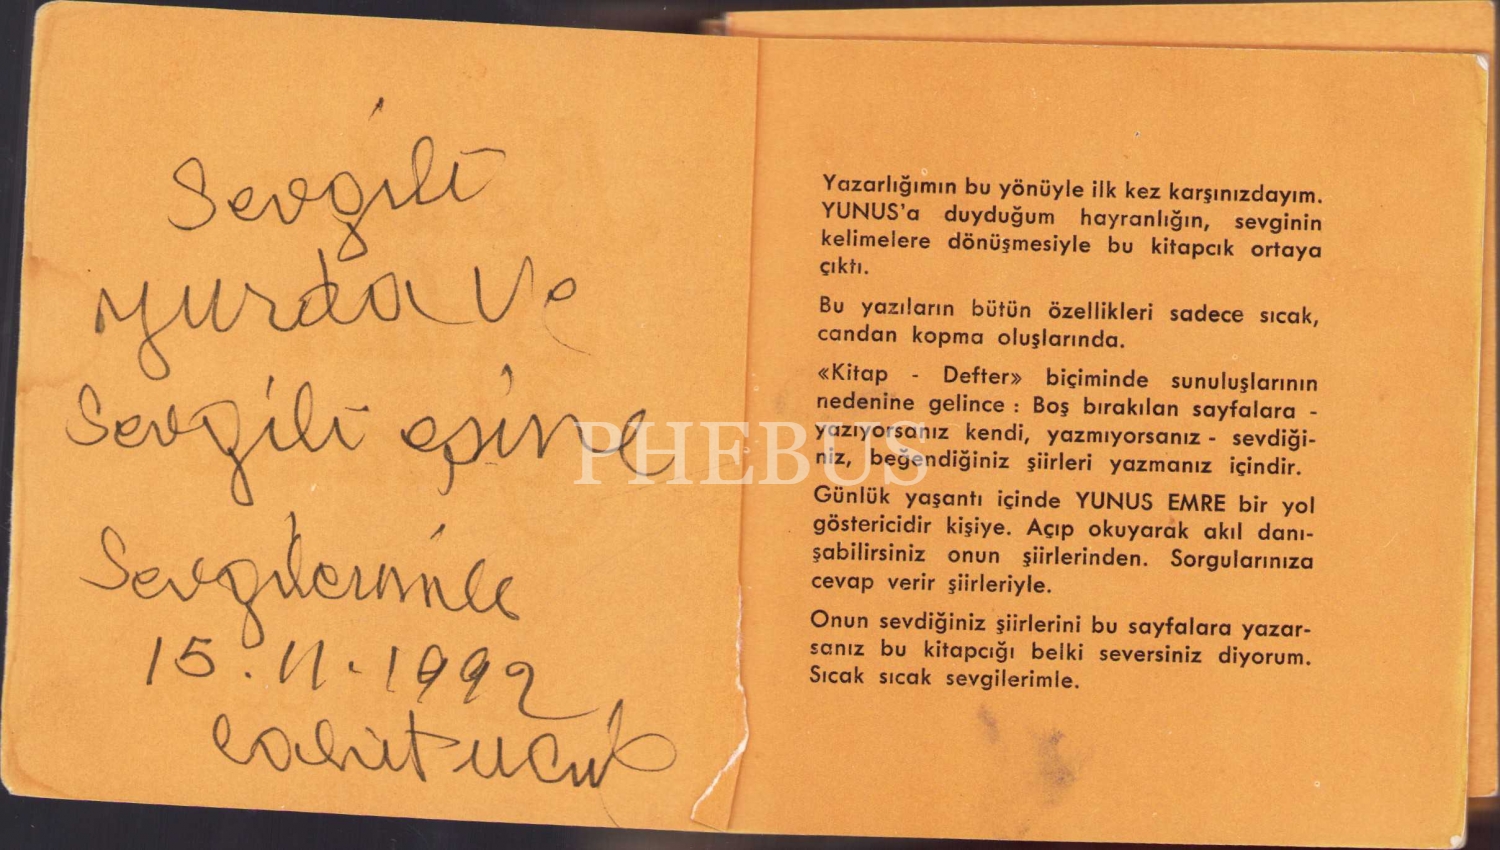 Sevgili
Yurda ve
Sevgili eşine
Sevgilerimle
15.11.1992
Cahit Uçuk
Yazarlığımın bu yönüyle ilk kez karşınızdayım.
YUNUS'a duyduğum hayranlığın, sevginin
kelimelere dönüşmesiyle bu kitapcık ortaya
çıktı.
Bu yazıların bütün özellikleri sadece sıcak,
candan kopma oluşlarında.
«Kitap - Defter» biçiminde sunuluşlarının
nedenine gelince : Boş bırakılan sayfalara -
yazıyorsanız kendi, yazmıyorsanız - sevdiği-
niz, beğendiğiniz şiirleri yazmanız içindir.
Günlük yaşantı içinde YUNUS EMRE bir yol
göstericidir kişiye. Açıp okuyarak akıl danı-
şabilirsiniz onun şiirlerinden. Sorgularınıza
cevap verir şiirleriyle.
Onun sevdiğiniz şiirlerini bu sayfalara yazar-
sanız bu kitapcığı belki seversiniz diyorum.
Sıcak sıcak sevgilerimle.
PHEBUS